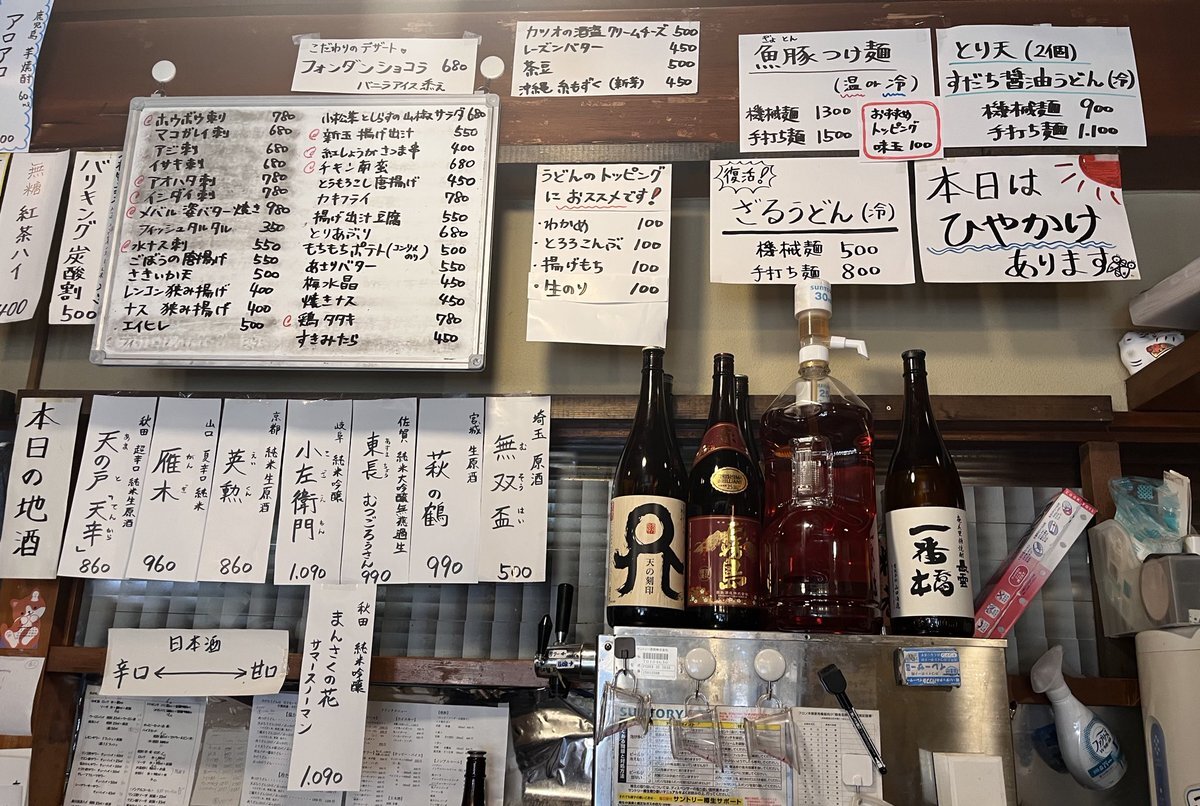 鹿児島 芋焼酎 60ml
アロアロ
無糖 紅茶ハイ
400
バリキング 炭酸割
500
こだわりのデザート♥
フォンダンショコラ 680
バニラアイス添え
カツオの酒盗クリームチーズ 500
レーズンバター 450
茶豆 500
沖縄 糸もずく(新芽) 450
ホウボウ刺 780
マコガレイ刺 680
アジ刺 680
イサキ刺 680
アオハタ刺 780
インダイ刺 780
メバル 姿バター焼き 980
フィッシュタルタル 350
水ナス刺 550
ごぼうの唐揚げ 550
さきいか天 500
レンコン挟み揚げ 400
ナス 挟み揚げ 400
エイヒレ 500
小松菜としらすの山椒サラダ 680
新玉 揚げ出汁 550
紅しょうがさつま串 400
チキン南蛮 680
とうもろこし唐揚げ 450
カキフライ 780
揚げ出汁豆腐 550
とりあぶり 680
もちもちポテト(コンソメ のり) 500
あさりバター 550
梅水晶 450
焼きナス 450
鶏タタキ 780
すきみたら 450
うどんのトッピング
に おススメです!
・わかめ 100
・とろろこんぶ 100
・揚げもち 100
・生のり 100
ぎょとん
魚豚つけ麺
(温or冷)
機械麺 1300
手打ち麺 1500
おすすめ
トッピング
味玉 100
とり天(2個)
すだち醤油うどん(冷)
機械麺 900
手打ち麺 1.100
復活!
ざるうどん(冷)
機械麺 500
手打ち麺 800
本日は
ひやかけ
あります
本日の地酒
秋田 超辛口 純米生原酒
天の戸 天辛
860
山口 夏辛口 純米
雁木
がんぎ
960
京都 純米生原酒
英勲
えいくん
860
岐阜 純米吟醸
小左衛門
こざえもん
1.090
佐賀 純米大吟醸無濾過生
東長 むつごろうさん
990
宮城 生原酒
萩の鶴
990
埼玉 原酒
無双盃
むそうはい
500
日本酒
辛口 ←→ 甘口
秋田 純米吟醸
まんさくの花
サマースノーマン
1.090
SUNTORY
天の刻印
一番橋
SUNTORY
サントリー樽生サポート